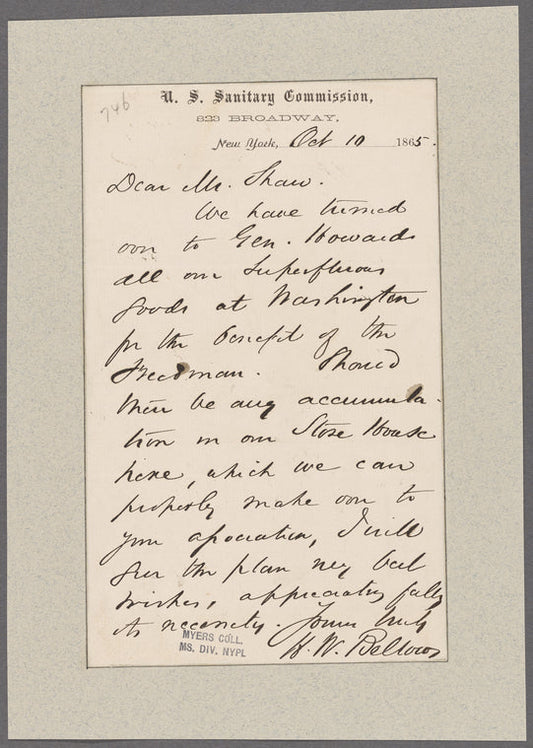 746
U. S. Sanitary Commission,
823 BROADWAY,
New York, Oct 10 1865.
Dear Mr. Shaw.
We have turned
over to Gen. Howards
all our superfluous
goods at Washington
for the benefit of the
Freedman. Should
there be any accumula-
tion in our Store House
here, which we can
properly make over to
your association, I will
give the plan my best
wishes, appreciating fully
its necessity. Yours truly
H. W. Bellows
MYERS COLL.
MS. DIV. NYPL